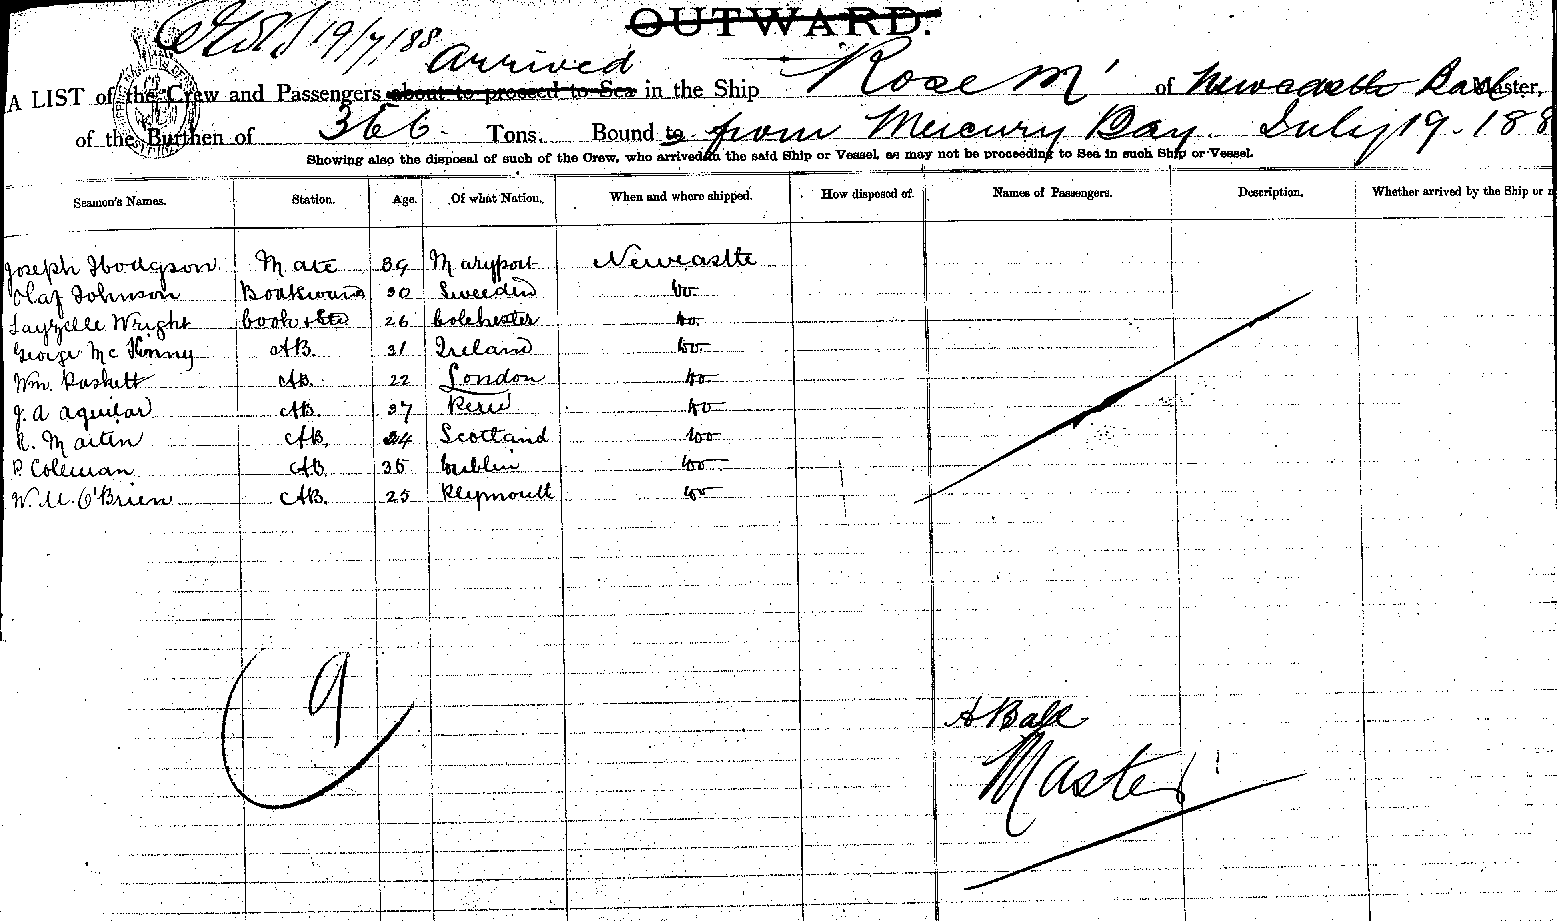 19/7/88 OUTWARD.
Arrived
A LIST of the Crew and Passengers about to proceed to Sea in the Ship Rose M of Newcastle Ball Master,
of the Burthen of 366 Tons. Bound to from Mercury Bay. July 19. 188
Showing also the disposal of such of the Crew, who arrived in the said Ship or Vessel, as may not be proceeding to Sea in such Ship or Vessel.
Seamen's Names. Station. Age. Of what Nation. When and where shipped. How disposed of. Names of Passengers. Description. Whether arrived by the Ship or n
Joseph Hodgson Mate 39 Maryport Newcastle
Olaf Johnson Boatswain 30 Sweeden do
Layzelle Wright Cook & Std 26 Colchester do
George Mc Kinny AB. 31 Ireland do
Wm. Paskett AB. 22 London do
J. A Aquilar AB. 37 Peru do
R. Martin AB. 24 Scotland do
P Coleman AB 35 Dublin do
W. M. O'Brien AB. 25 Plymouth do
9
A Ball
Master